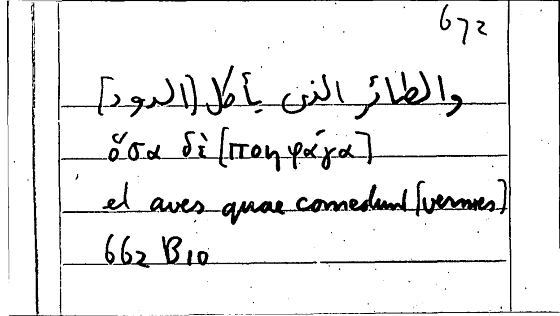 672
والطائر الذى يأكل [الدود]
ὅσα δὲ [ποηφάγα]
et aves quae comedunt [vermes]
662 B10